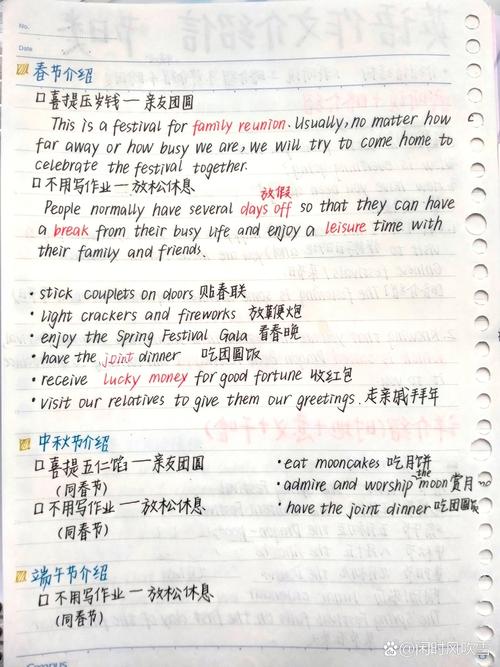 No.
Date
春节介绍
口喜提压岁钱一亲友团圆
This is a festival for family reunion. Usually, no matter how
far away or how busy we are, we will try to come home to
celebrate the festival together.
口不用写作业一放松休息
放假
People normally have several days off so that they can have
a break from their busy life and enjoy a leisure time with
their family and friends.
· stick couplets on doors 贴春联
· light crackers and fireworks 放鞭炮
· enjoy the Spring Festival Gala 看春晚
· have the joint dinner 吃团圆饭
· receive lucky money for good fortune 收红包
· visit our relatives to give them our greetings. 走亲戚拜年
中秋节介绍
口喜提五仁馅一亲友团圆
(同春节)
口不用写作业一放松休息
(同春节)
· eat mooncakes 吃月饼
· admire and worship the moon 赏月
· have the joint dinner 吃团圆饭
端午节介绍
口不用写作业一放松休息
(同春节)
Campus
@闲时风吹雪